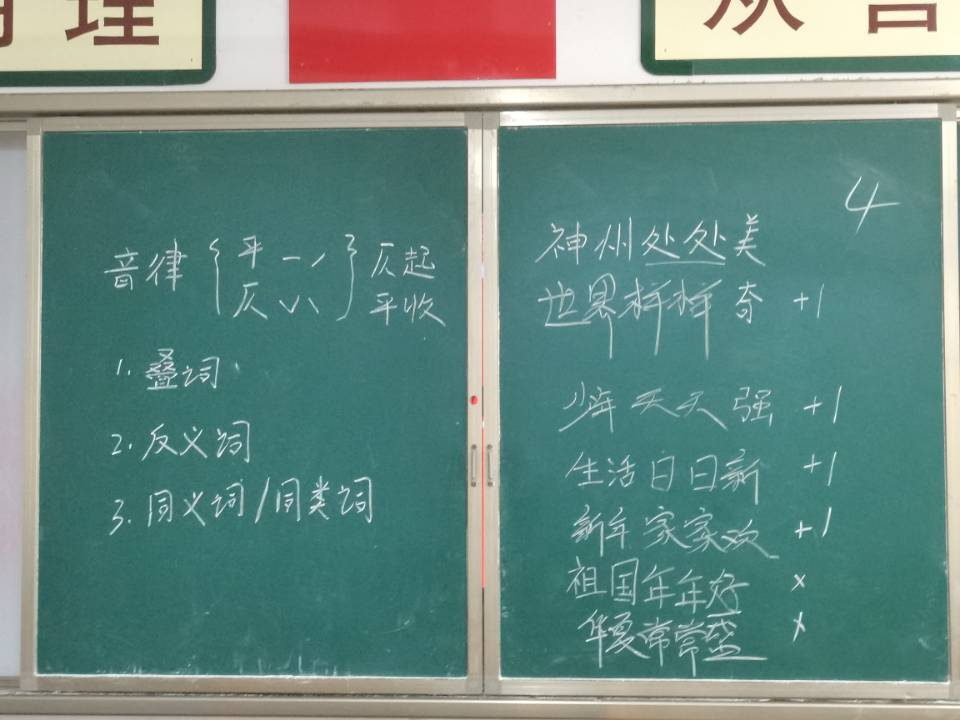 理
音律 { 平 一 ˊ
仄 ˇ ˋ } 仄起
平收
1. 叠词
2. 反义词
3. 同义词/同类词
4
神州处处美
世界样样奇 +1
少年天天强 +1
生活日日新 +1
新年家家欢 +1
祖国年年好 ×
华夏常常盛 ×